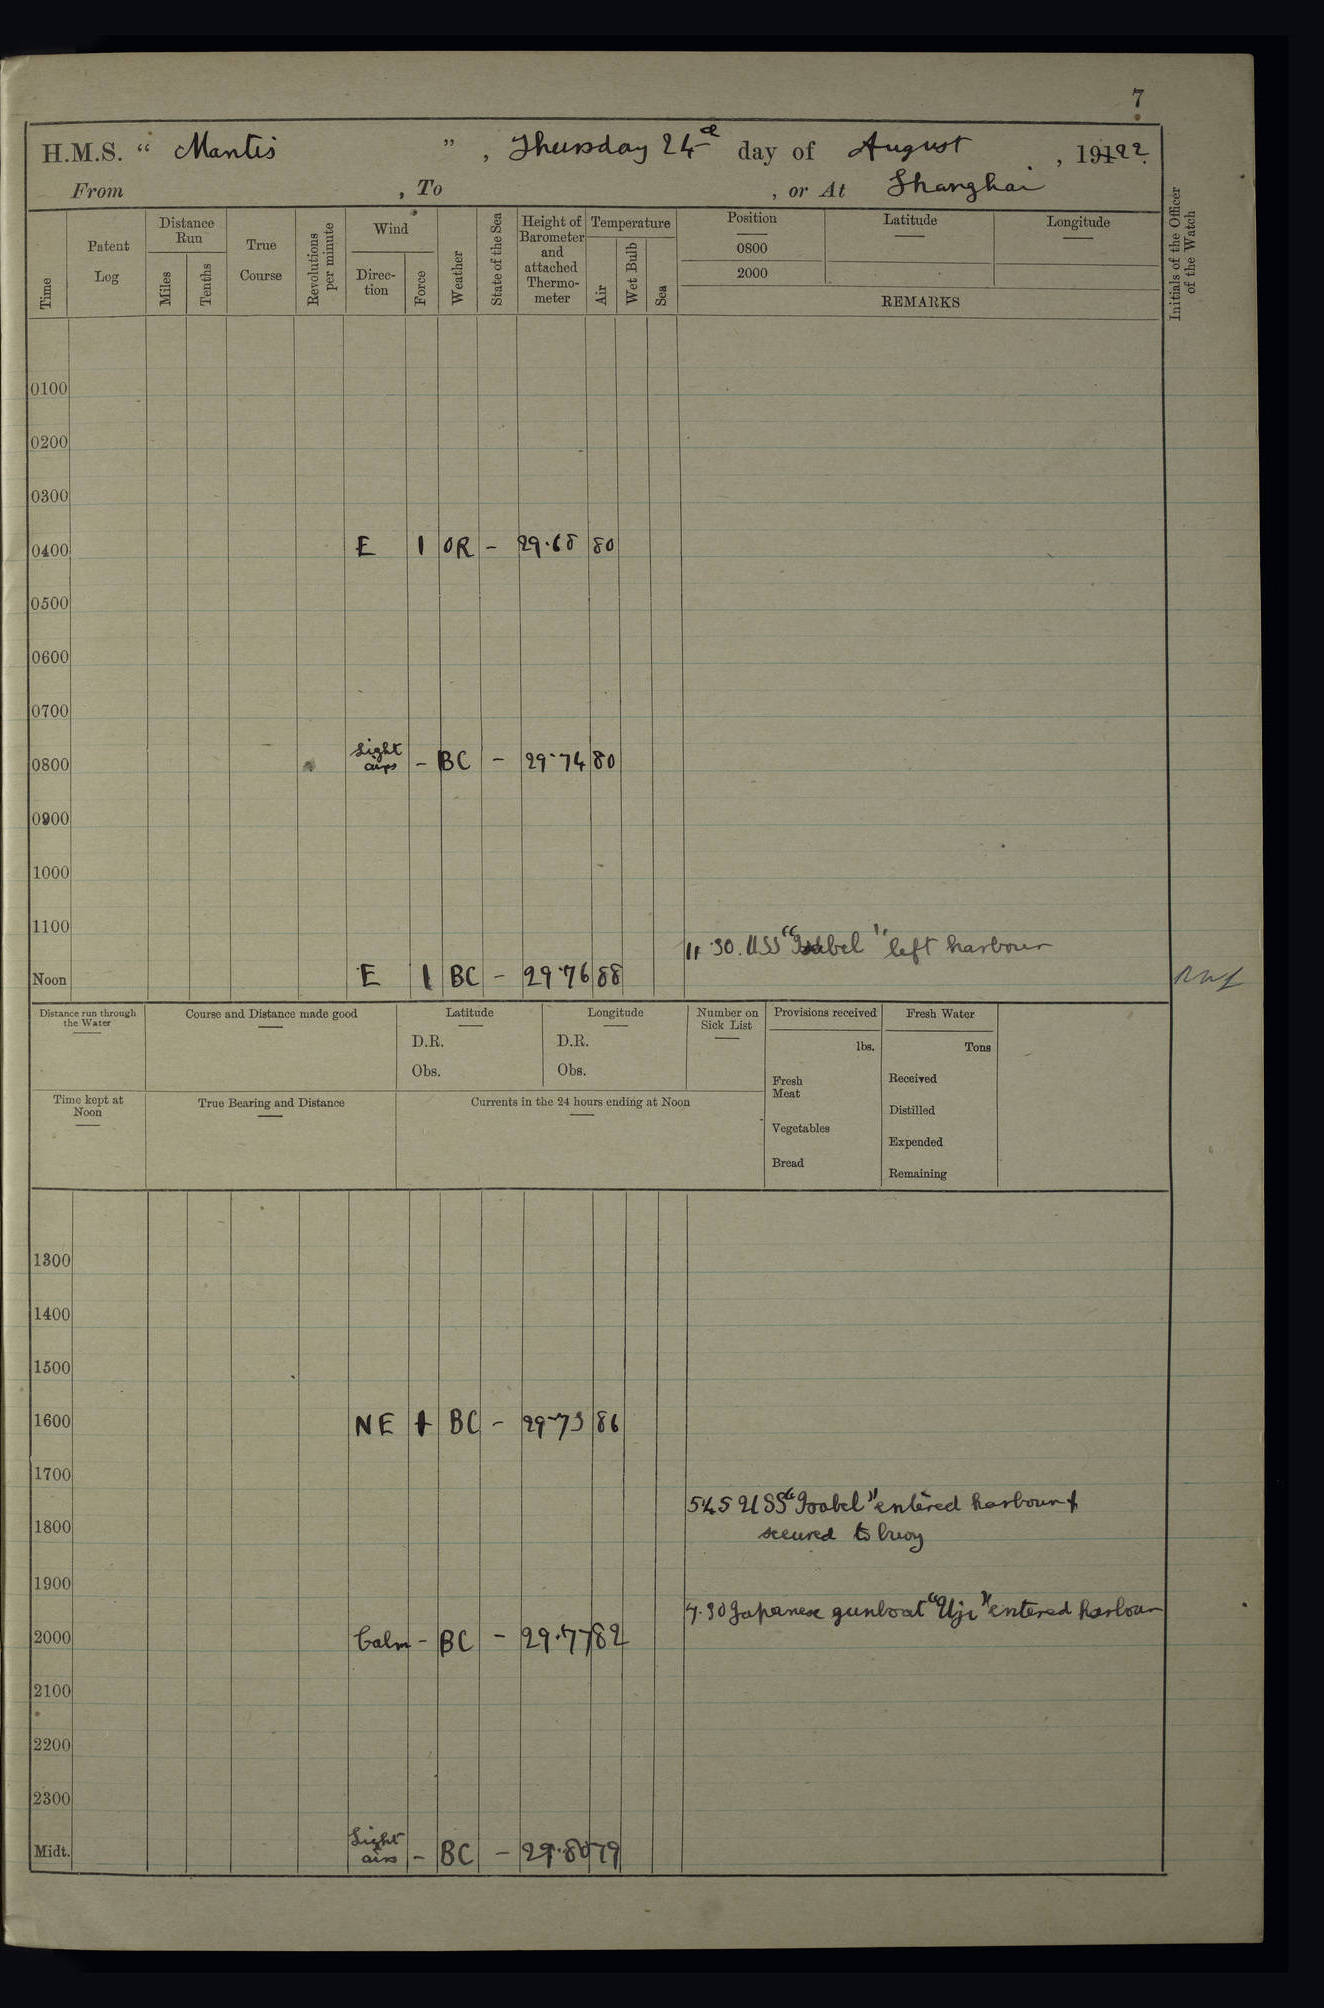 7
H.M.S. “ Mantis ” , Thursday 24 day of August , 1922.
From , To , or At Shanghai
Time
Patent Log
Distance Run
Miles
Tenths
True Course
Revolutions per minute
Wind
Direc-tion
Force
Weather
State of the Sea
Height of Barometer and attached Thermo-meter
Temperature
Air
Wet Bulb
Sea
Position Latitude Longitude
0800
2000
REMARKS
Initials of the Officer of the Watch
0100
0200
0300
0400 E 1 OR - 29.68 80
0500
0600
0700
0800 Light airs - BC - 29.74 80
0900
1000
1100
11.30. USS “Isabel” left harbour
Noon E 1 BC - 29.76 88
Distance run through the Water
Course and Distance made good
Latitude
D.R.
Obs.
Longitude
D.R.
Obs.
Number on Sick List
Provisions received
lbs.
Fresh Meat
Vegetables
Bread
Fresh Water
Tons
Received
Distilled
Expended
Remaining
Time kept at Noon
True Bearing and Distance
Currents in the 24 hours ending at Noon
1300
1400
1500
1600 NE 1 BC - 29.73 86
1700
545 USS “Isabel” entered harbour &
1800 secured to buoy
1900
7.30 Japanese gunboat “Uji” entered harbour
2000 Calm - BC - 29.77 82
2100
2200
2300
Midt. Light airs - BC - 29.80 79